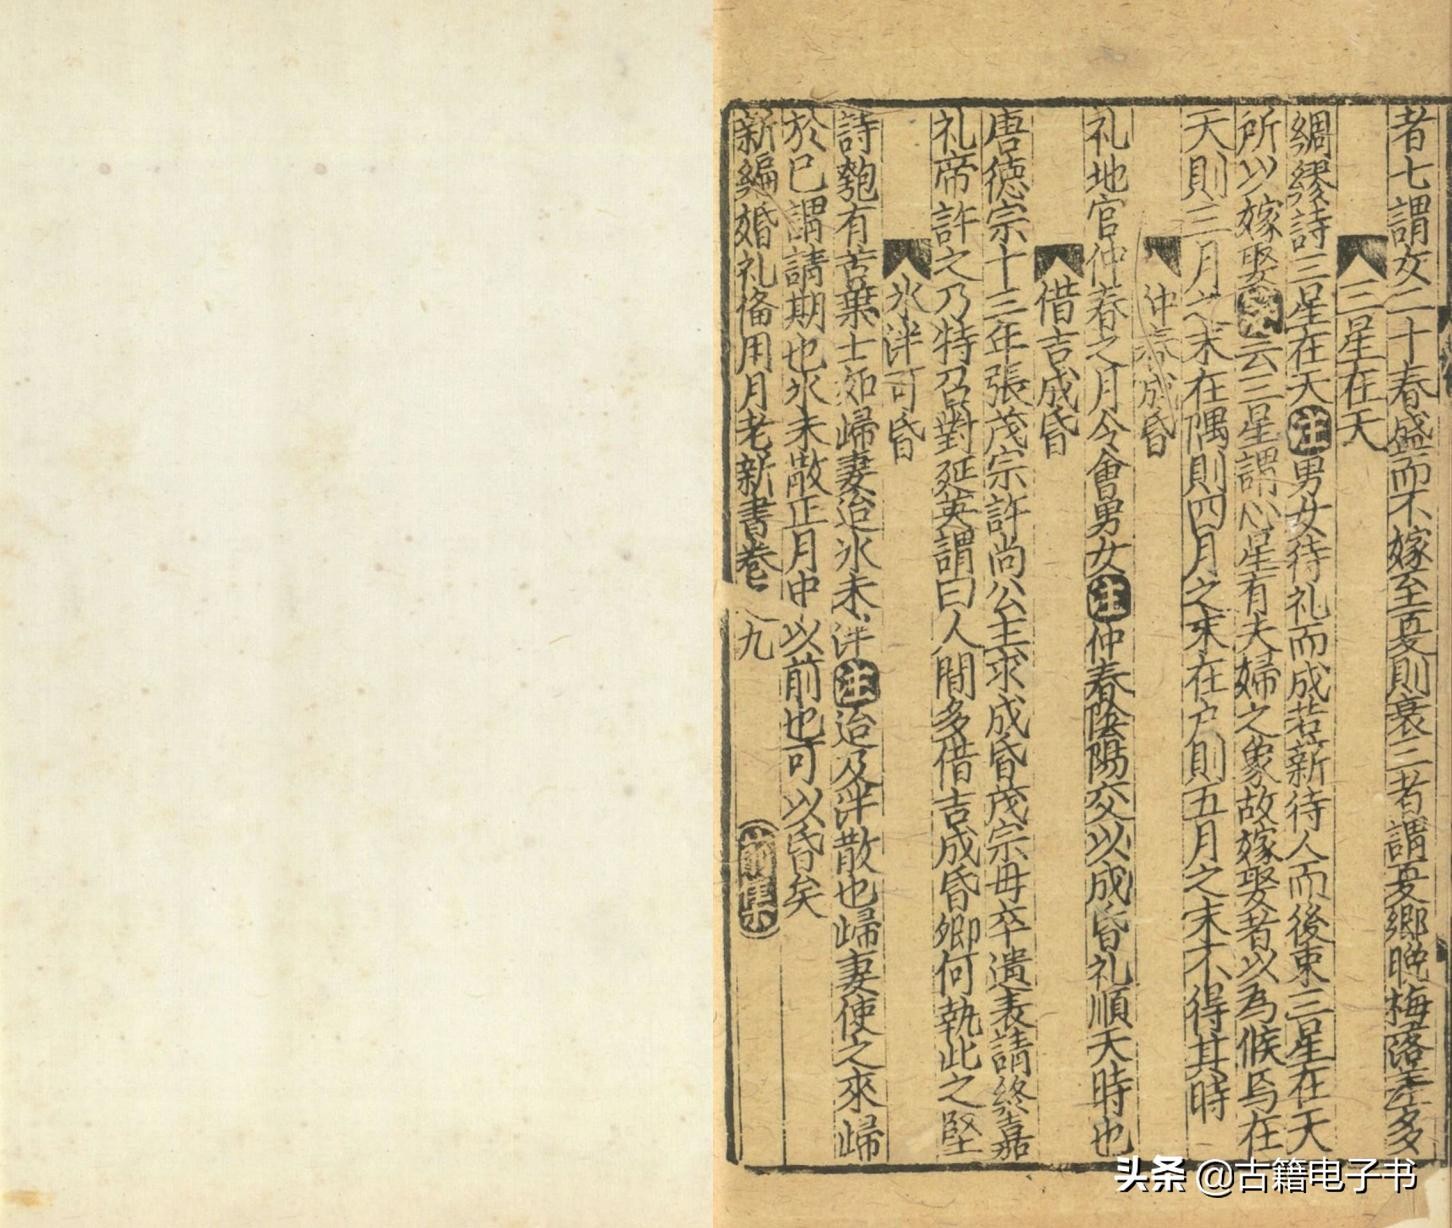 者七謂女二十春盛而不嫁至夏則衰三者謂夏鄉晚梅落
三星在天
綢繆詩三星在天注男女待礼而成若薪待人而後束三星在天
所以嫁娶云三星謂心星有夫婦之象故嫁娶者以為候焉在
天則三月之末在隅則四月之末在户則五月之末不得其時
仲春成昏
礼地官仲春之月令會男女注仲春陰陽交以成昏礼順天時也
借吉成昏
唐徳宗十三年張茂宗許尚公主求成昏茂宗母卒遺表請終嘉
礼帝許之乃特召對延英謂曰人間多借吉成昏卿何執此之堅
氷泮可昏
詩匏有苦葉士如歸妻迨氷未泮注迨及泮散也歸妻使之來歸
於已謂請期也氷未散正月中以前也可以昏矣
新編婚礼俻用月老新書卷九
前集
头条 @古籍电子书